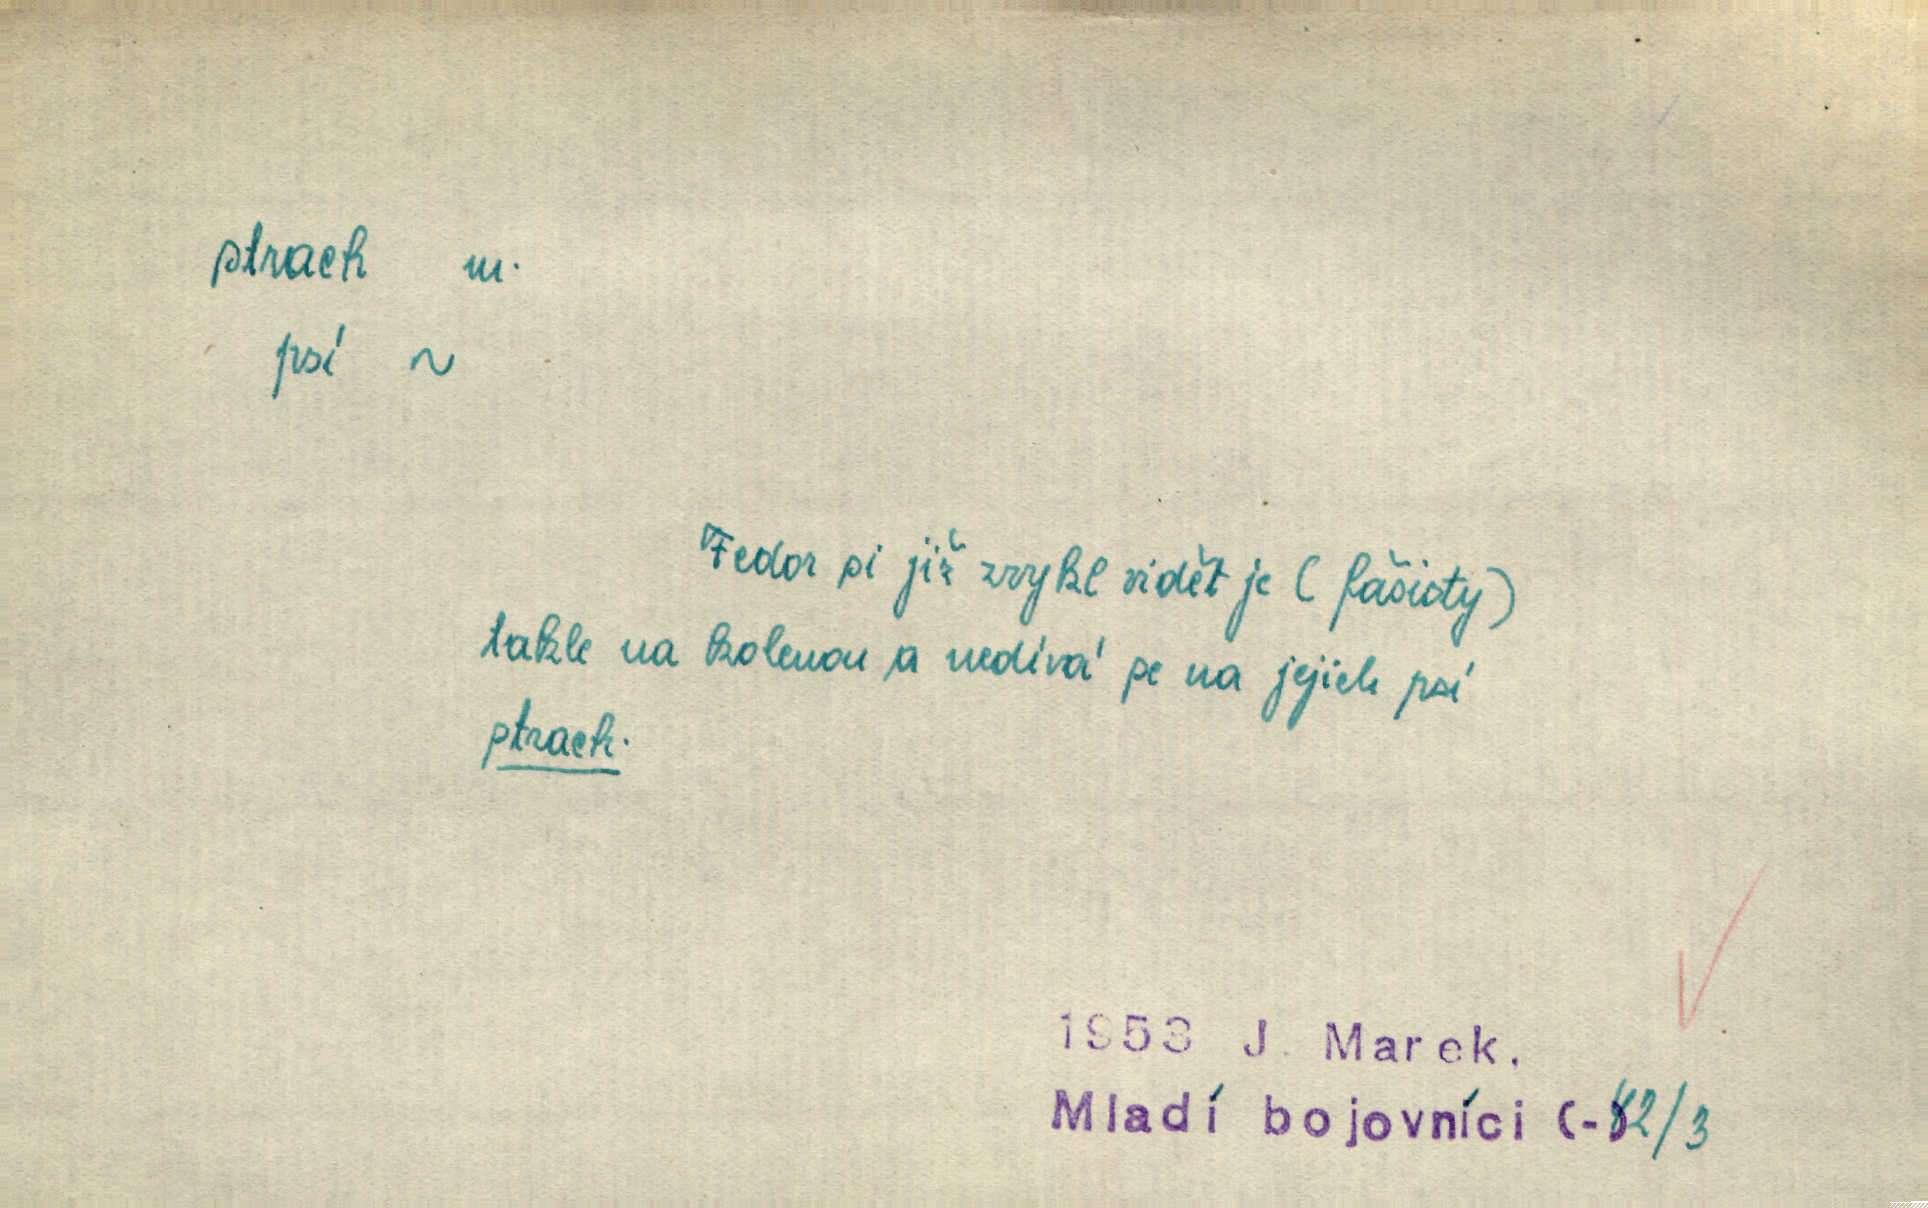 strach m.
psí ~
Fedor si již zvykl vidět je (fašisty)
takle na kolenou a nedívá se na jejich psí
strach.
1953 J. Marek.
Mladí bojovníci (-) 82/3